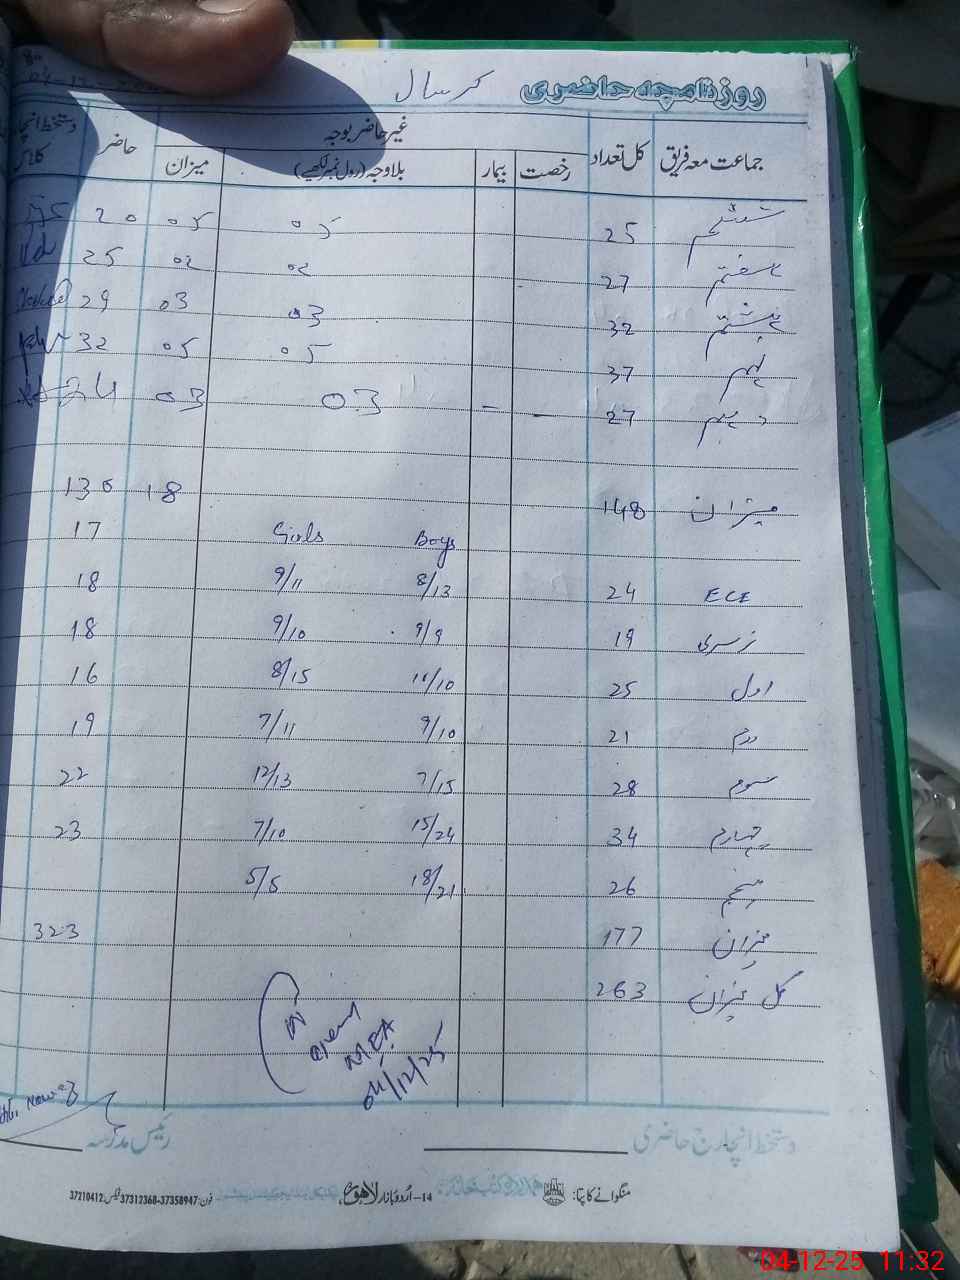 روزنامچہ حاضری کرسال
جماعت معہ فریق کل تعداد غیر حاضر بوجہ حاضر دستخط انچارج کلاس
رخصت بیمار بلاوجہ (رول نمبر لکھیے) میزان
ششم 25 05 05 20
ہفتم 27 02 02 25
ہشتم 32 03 03 29
نہم 37 05 05 32
دہم 27 - - 03 03 24
میزان 148 18 130
Boys Girls 17
ECE 24 8/13 9/11 18
نرسری 19 9/9 9/10 18
اول 25 11/10 8/15 16
دوم 21 9/10 7/11 19
سوم 28 7/15 12/13 22
چہارم 34 15/24 7/10 23
پنجم 26 18/21 5/5
میزان 177 323
کل میزان 263
MEA
04/12/25
دستخط انچارج حاضری رئیس مدرسہ
منگوانے کا پتا: 14-اُردو بازار لاہور، فون: 37312368-37358947 فیکس: 37210412
04-12-25 11:32